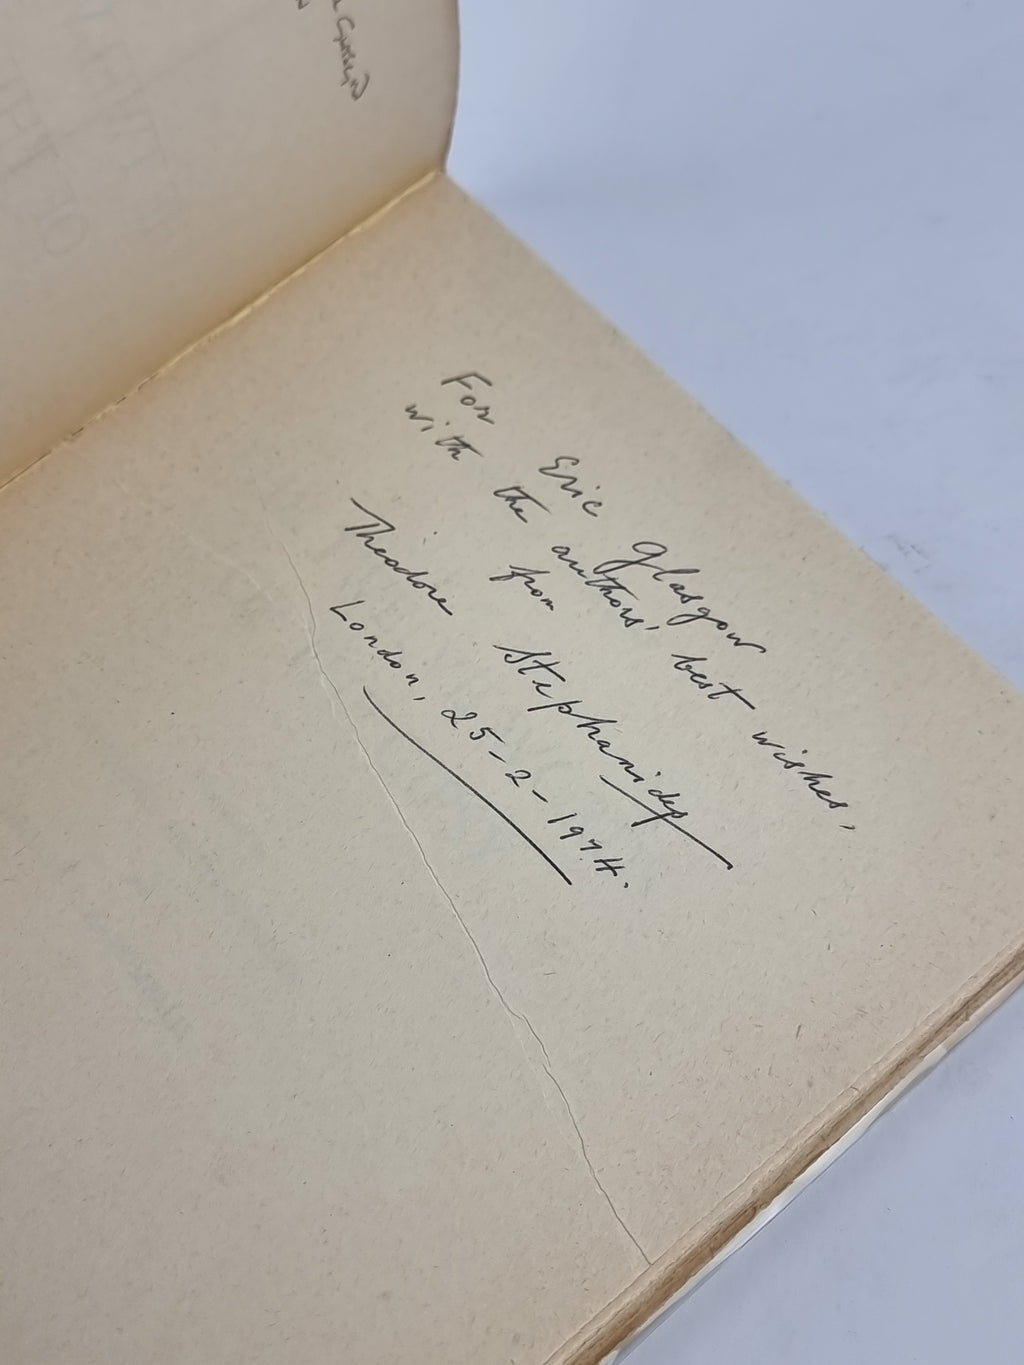 For Eric Glasgow
with the authors' best wishes,
from
Theodore Stephanides
London, 25-2-1974.